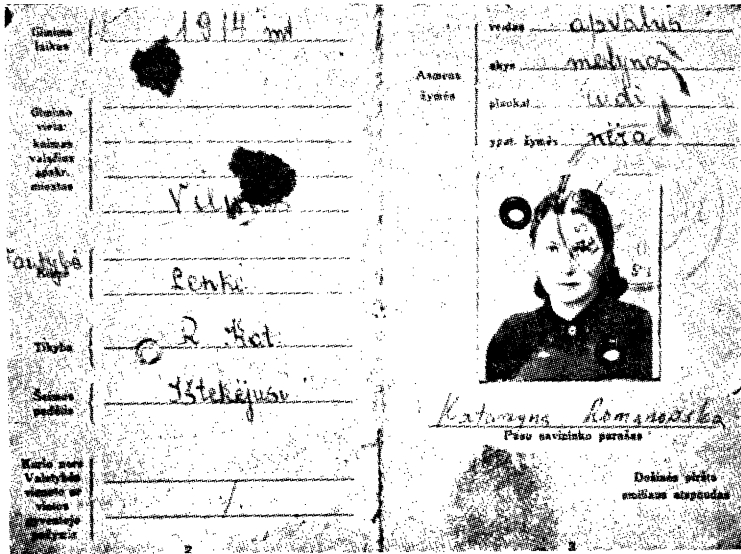 Gimimo
laikas
1914 mt
Gimimo
vieta:
kaimas
valsčius
apskr.
miestas
tautybė
Lenkė
Tikyba
R. Kat.
Šeimos
padėtis
Ištekėjusi
2
Asmens
žymės
veidas apvalus
akys mėlynos
plaukai
ypat. žymės nėra
Katarzyna Romanowska
Paso savininko parašas
Dešinės piršto
smiliaus atspaudas
3